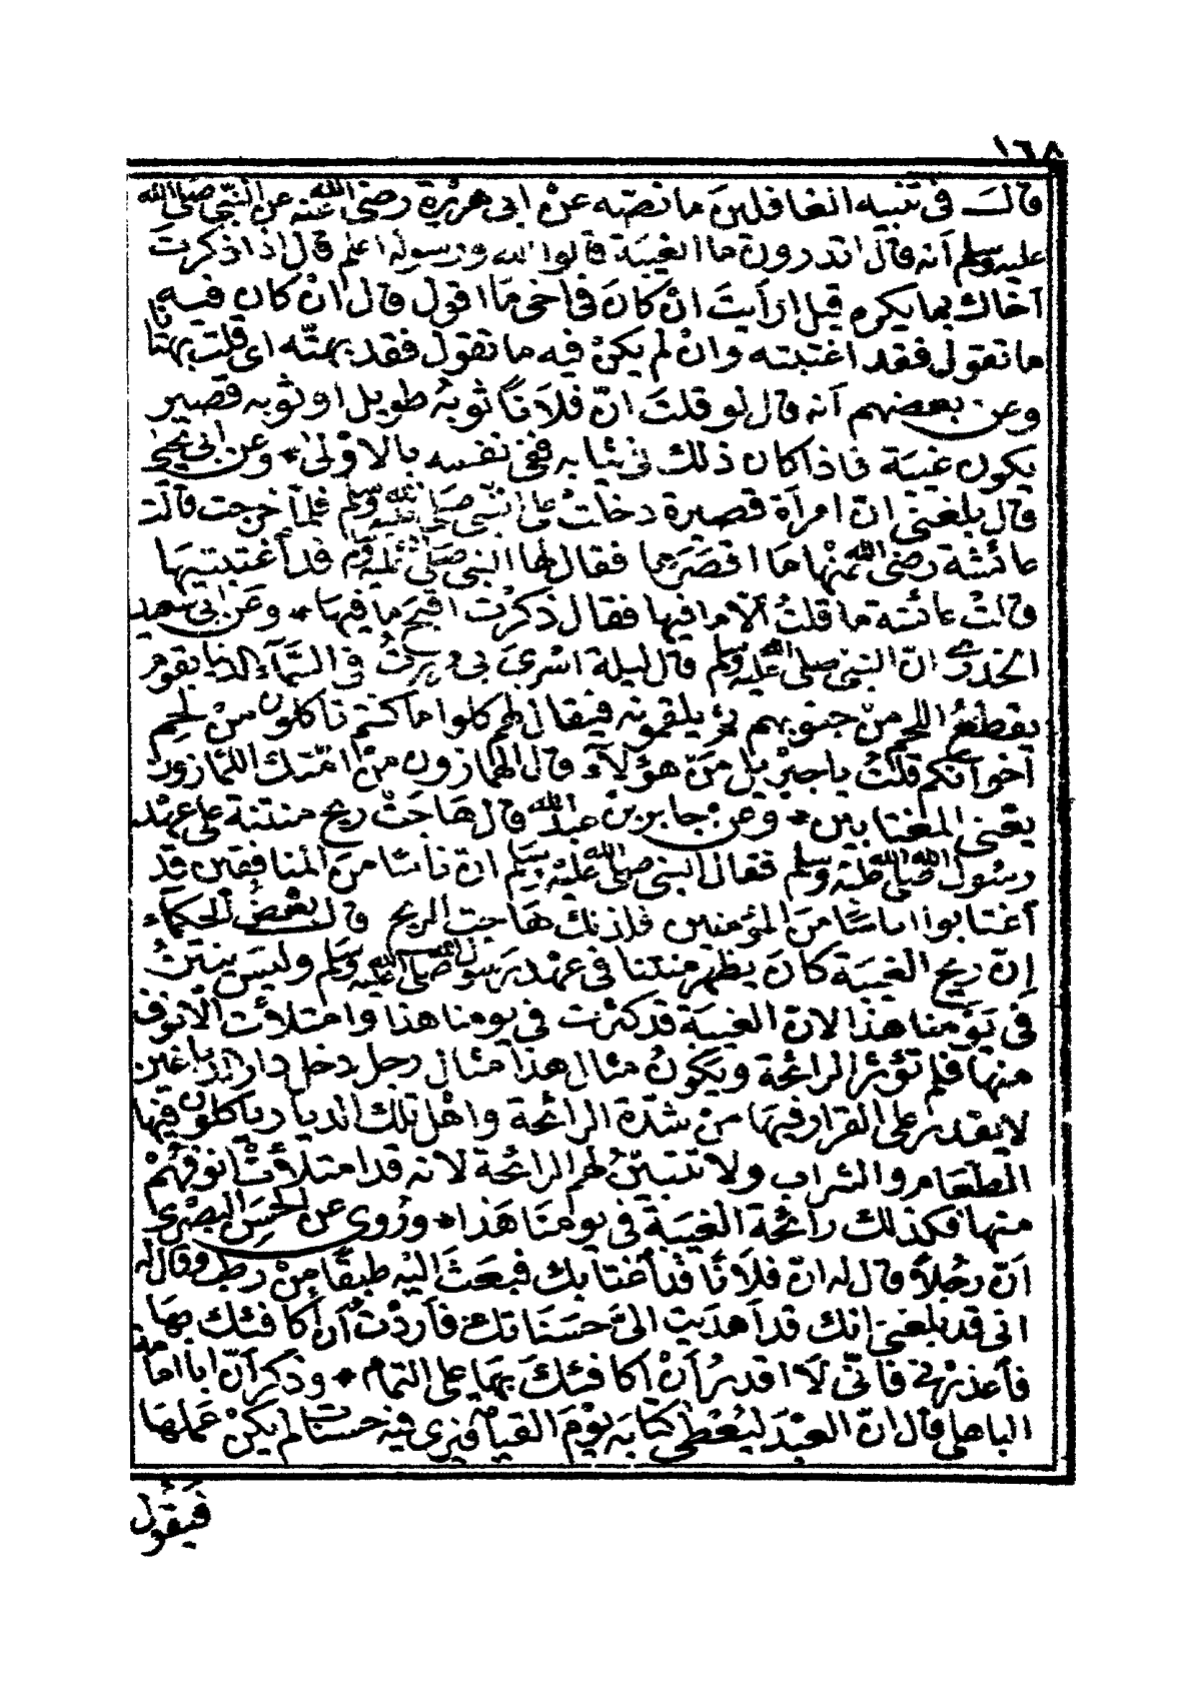 ١٦٨
قال في تنبيه الغافلين ما نصّه عن ابى هريرة رضى الله عنه عن النبّي صلى الله
عليه وسلم أنه قال اتدرون ما الغيبة قالوا الله ورسوله اعلم قال اذا ذكرت
أخاك بما يكره قيل ارأيت ان كان في اخى ما اقول قال ان كان فيه
ما تقول فقد اغتبته وان لم يكن فيه ما تقول فقد بهتّه اى قلت بهتانا
وعن بعضهم أنه قال لو قلت انّ فلاناً ثوبه طويل او ثوبه قصير
يكون غيبة فاذا كان ذلك في ثيابه ففى نفسه بالاولى * وعن ابى نجيح
قال بلغنى انّ امرأة قصيرة دخلت على النبى صلى الله عليه وسلم فلما خرجت قالت
عائشة رضى الله عنها ما اقصرها فقال لها النبى صلى الله عليه وسلم قد أغتبتيها
قالت عائشة ما قلت الا ما فيها فقال ذكرت اقبح ما فيها * وعن ابى سعيد
الخدرى انّ النبى صلى الله عليه وسلم قال ليلة اسرى بى مررت في السّمآء الدنيا بقوم
يقطع اللحم من جنوبهم ثم يلقمونه فيقال لهم كلوا ما كنتم تأكلون من لحم
أخوانكم قلت ياجبريل من هؤلآء قال الهمازون من امّتك اللمازون
يعنى المغتابين * وعن جابر بن عبد الله قال هاجت ريح منتنة على عهد
رسول الله صلى الله عليه وسلم فقال النبى صلى الله عليه وسلم ان ناسا من المنافقين قد
أغتابوا اناسًا من المؤمنين فلذلك هاجت الريح قال بعض الحكمآء
إنّ ريح الغيبة كان يظهر منتنا في عهد رسول الله صلى الله عليه وسلم وليس ينتن
في يومنا هذا لان الغيبة قد كثرت في يومنا هذا وامتلأت الانوف
منها فلم تؤثر الرائحة ويكون مثال هذا مثال رجل دخل دار الدباغين
لا يقدر على القرار فيها من شدّة الرائحة واهل تلك الديار ياكلون فيها
الطعام والشراب ولا تتبيّن لهم الرائحة لانه قد امتلأت انوفهم
منها فكذلك رائحة الغيبة في يومنا هذا * وروى عن الحسن البصرى
انّ رجلاً قال له انّ فلانًا قد أغتابك فبعث اليه طبقًا من رطب وقال له
انى قد بلغنى انك قد أهديت الىّ حسناتك فأردت أن أكافئك بها
فأعذرنى فانّى لا اقدر أن أكافئك بها على التمام * وذكر أنّ أبا امامة
الباهلى قال انّ العبد ليعطى كتابه يوم القيامة فيرى فيه حسنات لم يكن عملها
فيقول